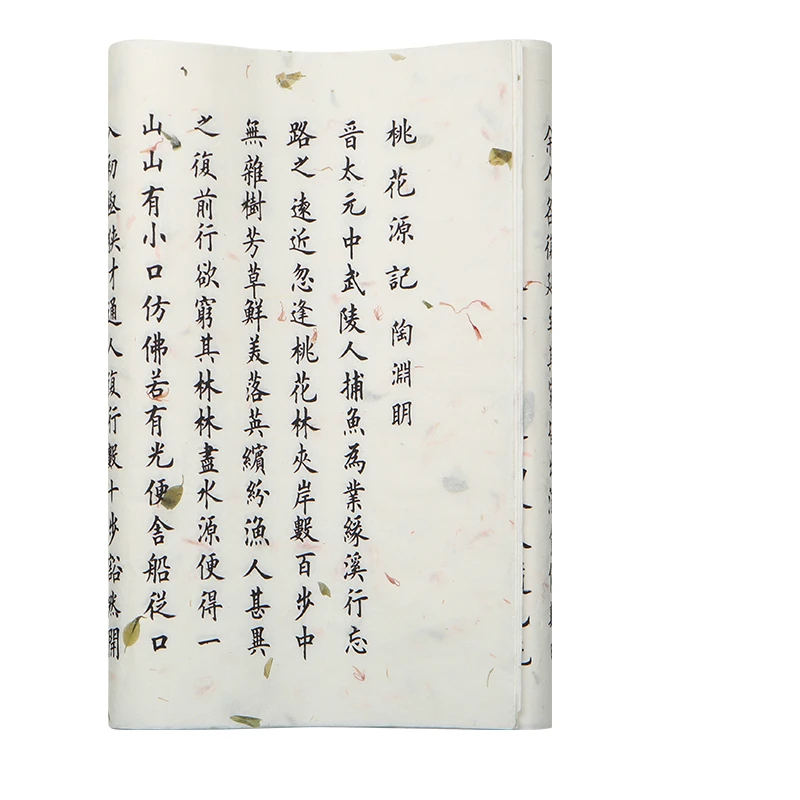 桃花源記 陶淵明
晋太元中武陵人捕魚為業緣溪行忘
路之遠近忽逢桃花林夾岸數百步中
無雜樹芳草鮮美落英繽紛漁人甚異
之復前行欲窮其林林盡水源便得一
山山有小口仿佛若有光便舍船從口
入初極狹才通人復行數十步豁然開